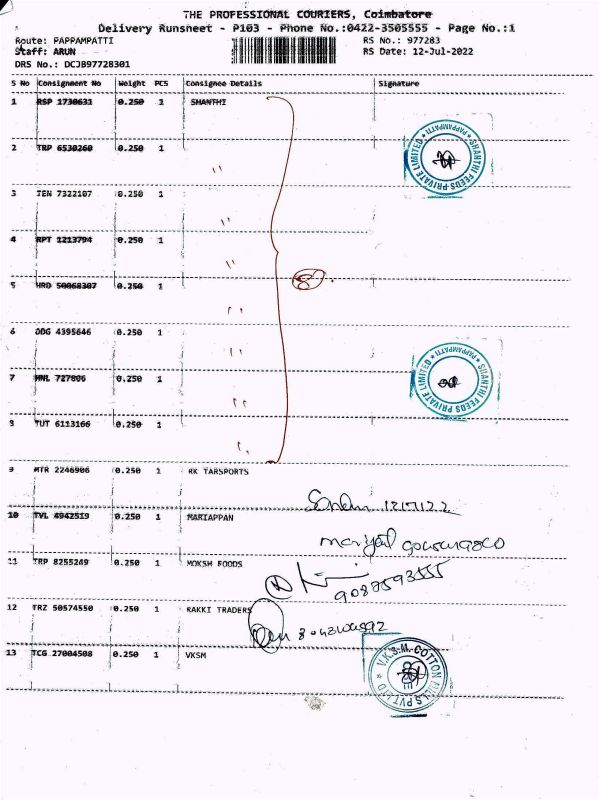 THE PROFESSIONAL COURIERS, Coimbatore
Delivery Runsheet - P103 - Phone No.:0422-3505555 - Page No.:1
Route: PAPPAMPATTI RS No.: 977283
Staff: ARUN RS Date: 12-Jul-2022
DRS No.: DCJB97728301
S No Consignment No Weight PCS Consignee Details Signature
1 RSP 1730631 0.250 1 SHANTHI
2 TRP 6530260 0.250 1 "
3 TEN 7322107 0.250 1 "
4 RPT 1213794 0.250 1 "
5 HRD 50068307 0.250 1 "
8
6 ODG 4395646 0.250 1 "
7 NNL 727806 0.250 1 "
8 TUT 6113166 0.250 1 "
SHANTHI FEEDS PRIVATE LIMITED * PAPPAMPATTI *
SHANTHI FEEDS PRIVATE LIMITED * PAPPAMPATTI *
9 MTR 2246906 0.250 1 RK TARSPORTS
10 TVL 4942519 0.250 1 MARIAPPAN
11 TRP 8255249 0.250 1 MOKSH FOODS
12 TRZ 50574550 0.250 1 RAKKI TRADERS
13 TCG 27004508 0.250 1 VKSM
V.K.S.M. COTTON MILLS PVT LTD *